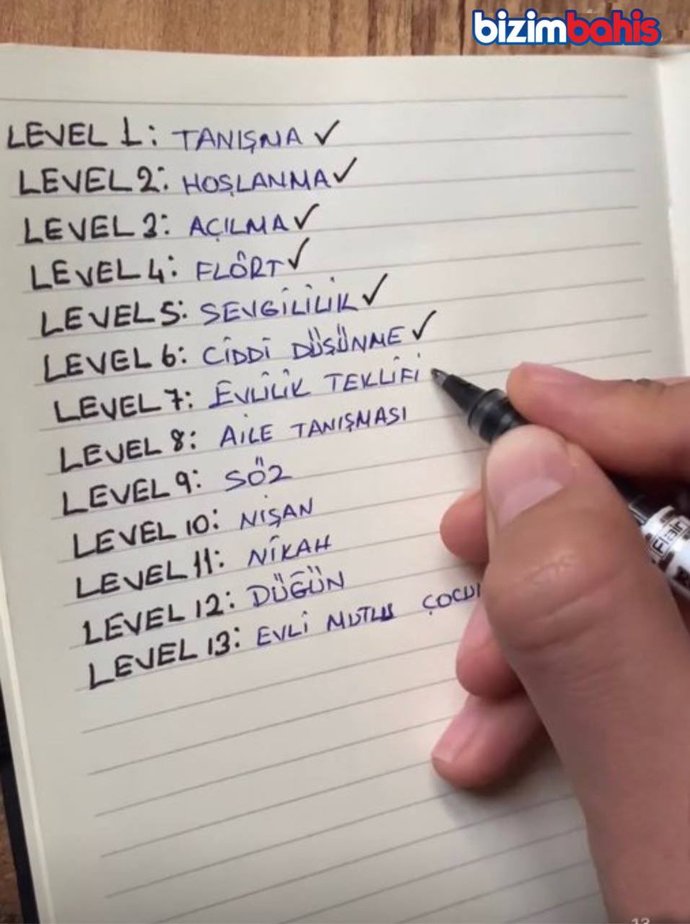 bizimbahis
LEVEL 1: TANIŞMA ✓
LEVEL 2: HOŞLANMA ✓
LEVEL 3: AÇILMA ✓
LEVEL 4: FLÖRT ✓
LEVEL 5: SEVGİLİLİK ✓
LEVEL 6: CİDDİ DÜŞÜNME ✓
LEVEL 7: EVLİLİK TEKLİFİ
LEVEL 8: AİLE TANIŞMASI
LEVEL 9: SÖZ
LEVEL 10: NİŞAN
LEVEL 11: NİKAH
LEVEL 12: DÜĞÜN
LEVEL 13: EVLİ MUTLU
Flair